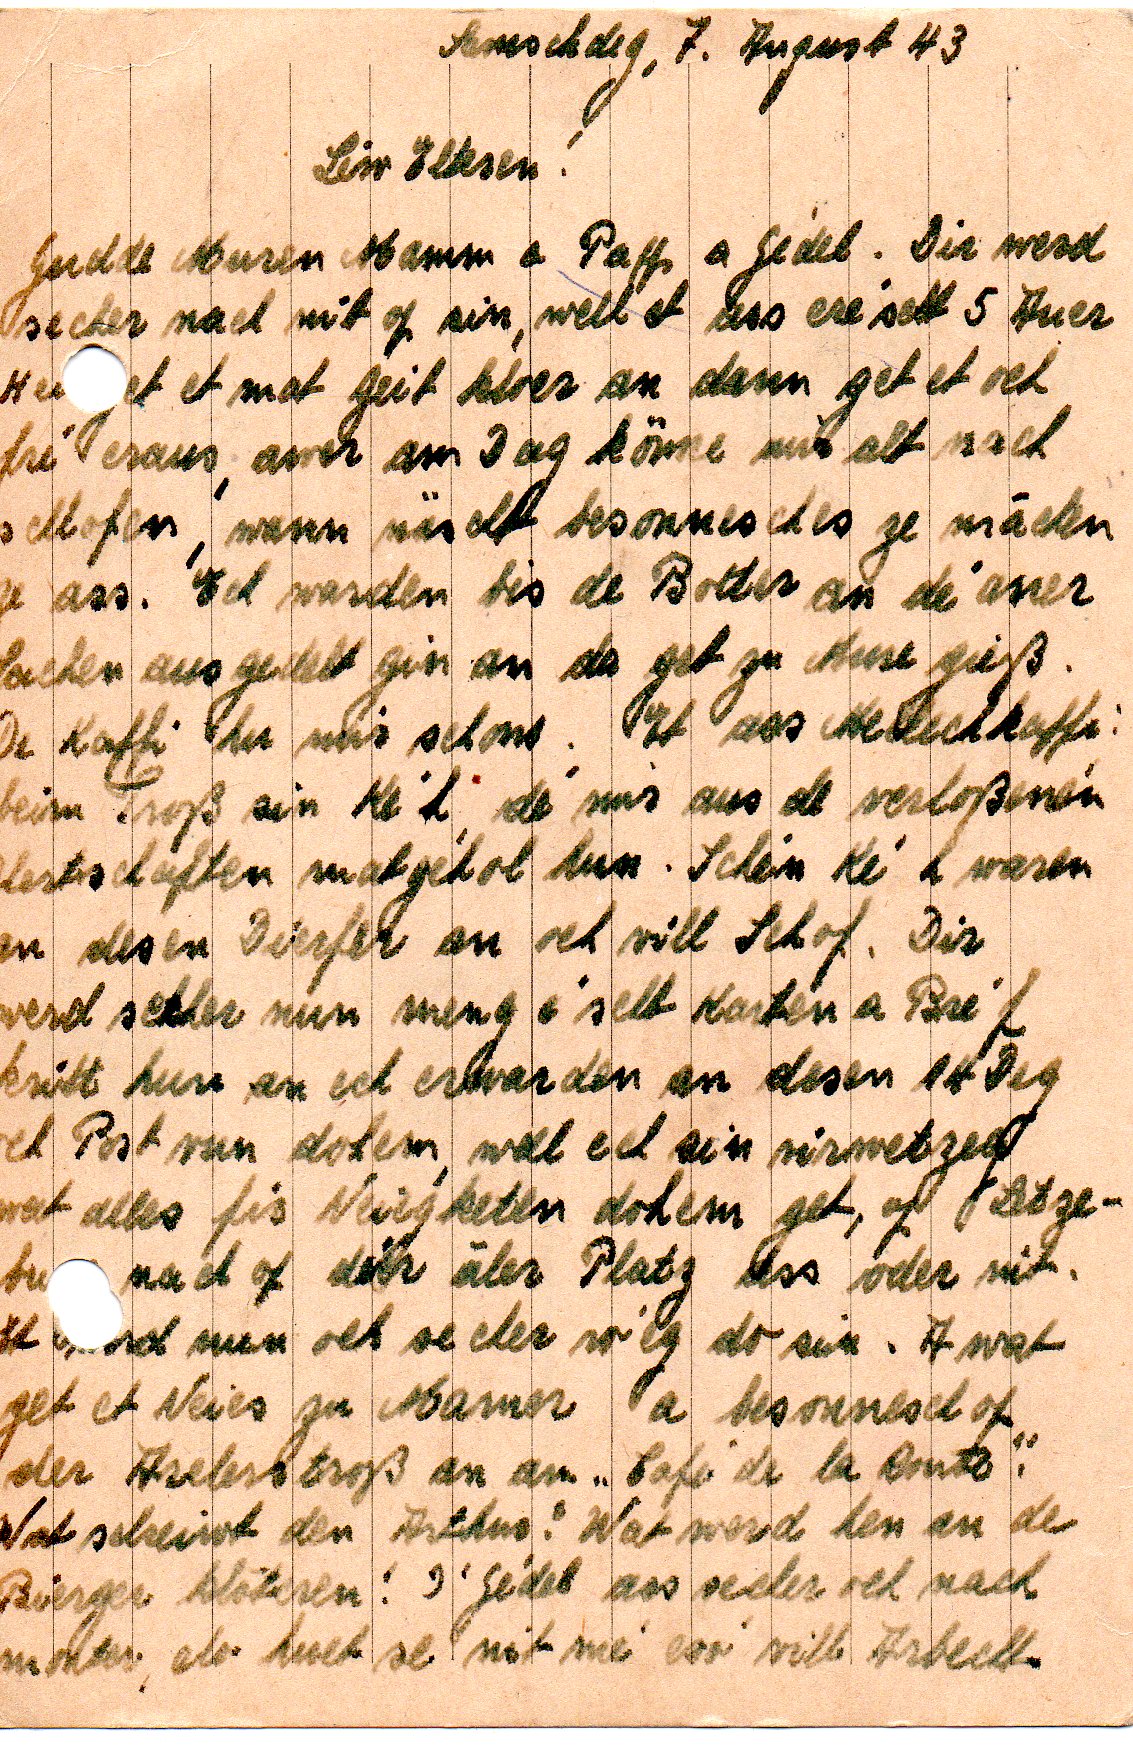 Samschdeg, 7. August 43
Léiw Elteren!
Gudde Muren Mamm a Papp a Gédel. Dir werd
secher nach nit op sin, well et ass eréischt 5 Auer
et et mat Zeit kloer an dann get et och
fréi eraus, awer am Dag könne mir alt nach
schlofen, wann näischt besonnesches ze mächen
ass. Ech warden bis de Botter an déi aner
Sachen ausgedelt gin an da get zu Muere giess.
De Kaffi hu mir schons. Et ass Mëllechkaffi:
beim Troß sin Kéih, déi mir aus de verloßenen
Uertschaften matgeholl hun. Schéin Kéih waren
an desen Dierfer an och vill Schof. Dir
werd secher nun meng éischt Karten a Bréif
kritt hun an ech erwarden an desen 14 Deg
och Post vun dohem, well ech sin virwetzeg
wat alles fir Neiegketen dohem get, op Letze-
bu nach op der äler Platz ass oder nit.
Et werd nun och secher rouëg do sin. A wat
get et Neies zu Mamer a besonnesch op
der Arelerstroß an am „Café de la Route".
Wat schreiwt den Arthur? Wat werd hen an de
Bierger klöteren! D'Gédel ass secher och nach
monter, elo huet se nit méi esou vill Arbecht